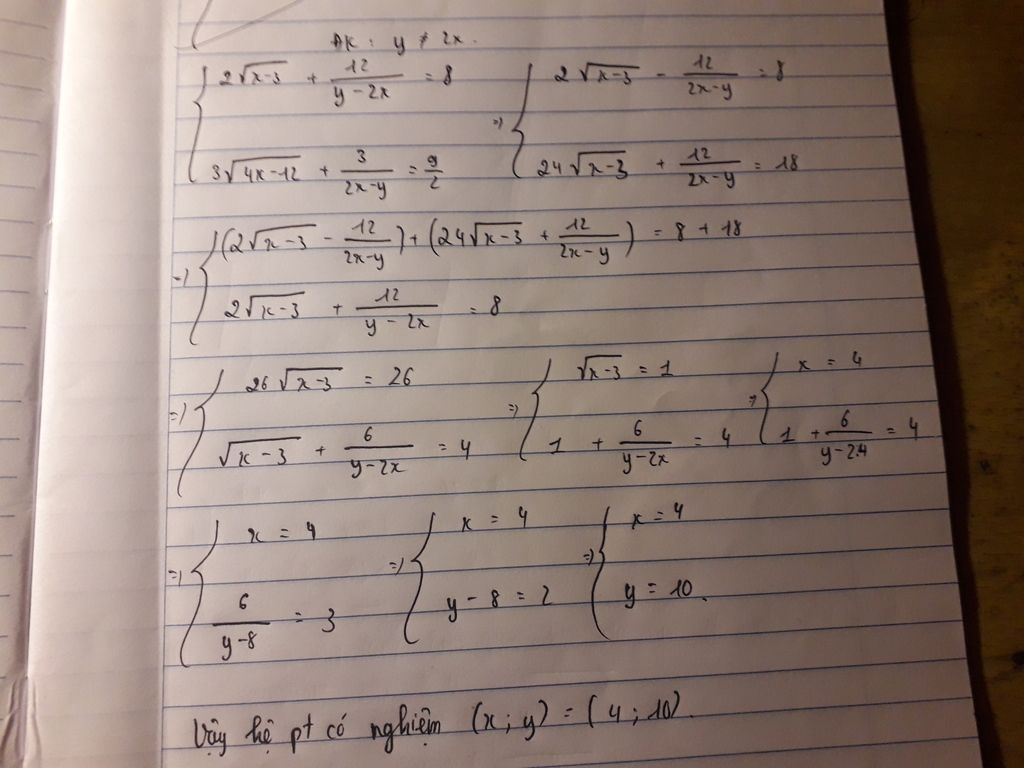 ĐK : y ≠ 2x.
{ 2√(x-3) + 12/(y-2x) = 8 ; 3√(4x-12) + 3/(2x-y) = 9/2 => { 2√(x-3) - 12/(2x-y) = 8 ; 24√(x-3) + 12/(2x-y) = 18
=> { (2√(x-3) - 12/(2x-y)) + (24√(x-3) + 12/(2x-y)) = 8 + 18 ; 2√(x-3) + 12/(y-2x) = 8
=> { 26√(x-3) = 26 ; √(x-3) + 6/(y-2x) = 4 => { √(x-3) = 1 ; 1 + 6/(y-2x) = 4 => { x = 4 ; 1 + 6/(y-2.4) = 4
=> { x = 4 ; 6/(y-8) = 3 => { x = 4 ; y - 8 = 2 => { x = 4 ; y = 10.
Vậy hệ pt có nghiệm (x; y) = (4; 10).